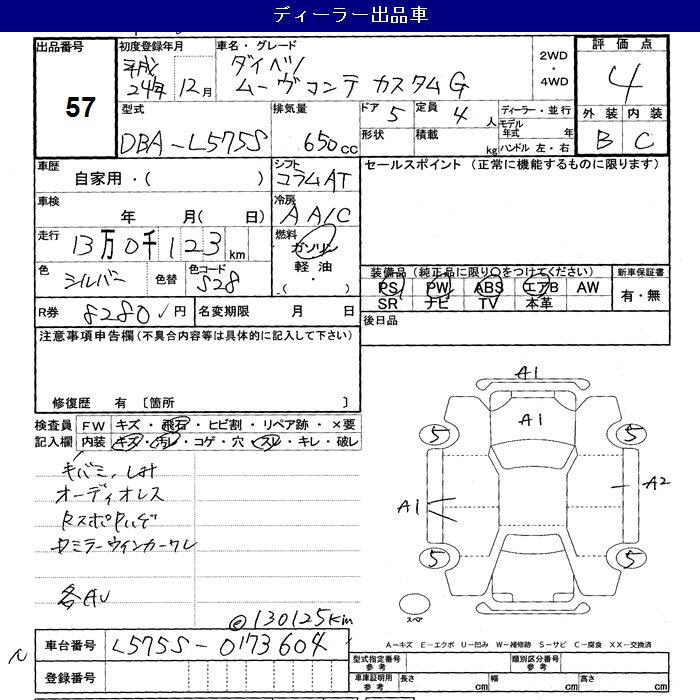 ディーラー出品車
出品番号
57
初度登録年月
平成
24年 12月
車名・グレード
ダイハツ
ムーヴコンテ カスタムG
2WD
・
4WD
評価点
4
外装 内装
B C
型式
DBA-L575S
排気量
650cc
ドア 5
定員 4人
形状
積載 kg
ディーラー・並行
モデル
年式 年
ハンドル 左・右
車歴
自家用・( )
シフト
コラムAT
セールスポイント (正常に機能するものに限ります)
車検
年 月( 日)
冷房
AA/C
走行
13万0千123km
燃料
ガソリン
軽油
・
( )
色
シルバー
色替
色コード
S28
装備品(純正品に限り○をつけてください)
新車保証書
PS PW ABS エアB AW
SR ナビ TV 本革
有・無
R券 8280円
名変期限 月 日
後日品
注意事項申告欄(不具合内容等は具体的に記入して下さい)
修復歴 有 〔箇所 〕
検査員
記入欄
FW キズ・飛石・ヒビ割・リペア跡・×要
内装 キズ・汚レ・コゲ・穴・スレ・キレ・破レ
キバミ、しみ
オーディオレス
各AU
©130125km
A1
A1
5 5
A1
A2
5 5
スペア
A-キズ E-エクボ U-凹み W-補修跡 S-サビ C-腐食 XX-交換済
車台番号 L575S-0173604
登録番号
型式指定番号
参考
類別区分番号
参考
車庫証明用
参考
長さ cm
幅 cm
高さ cm